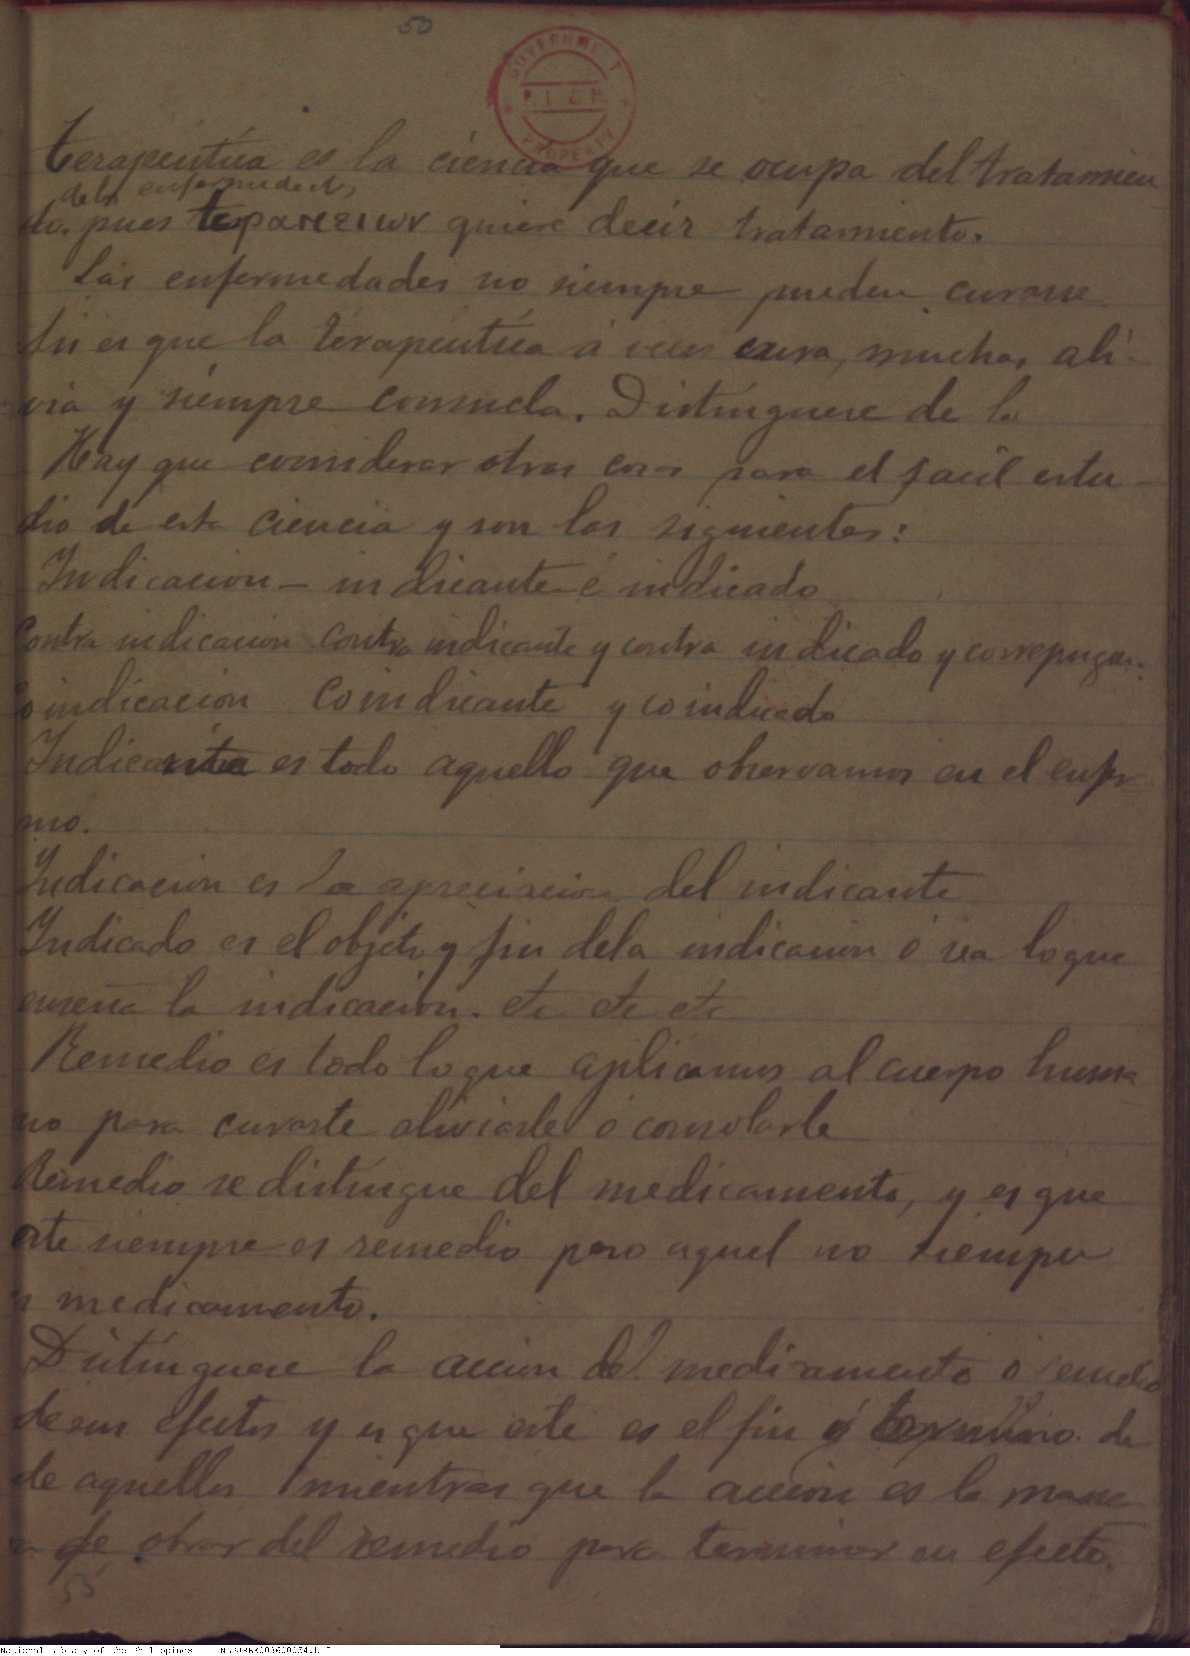 50
GOVERNMENT
PROPERTY
Terapeútica es la ciencia que se ocupa del tratamien
dela enfermedades
to. pues quiere decir tratamiento.
Las enfermedades no siempre pueden curarse
es que la terapeútica á veces cura, muchas ali-
via y siempre consuela. Distínguese de la
Hay que considerar otras cosas para el facil estu-
dio de esta ciencia y son las siguientes:
Indicacion - indicante é indicado
Contra indicacion contra indicante y contra indicado y
Coindicacion Coindicante y coindicado
es todo aquello que observamos en el enfer-
mo.
Indicacion es la apreciacion del indicante
Indicado es el objeto y fin dela indicacion ó sea loque
enseña la indicacion. etc etc etc
Remedio es todo loque aplicamos al cuerpo huma
no para curarle aliviarle ó consolarle
Remedio se distíngue del medicamento, y es que
este siempre es remedio pero aquel no siempre
es medicamento.
Distínguese la accion del medicamento ó remedio
de sus efectos y es que este es el fin ó termino de
de aquellos mientras que la accion es la mane
ra de obrar del remedio para terminar en efecto.